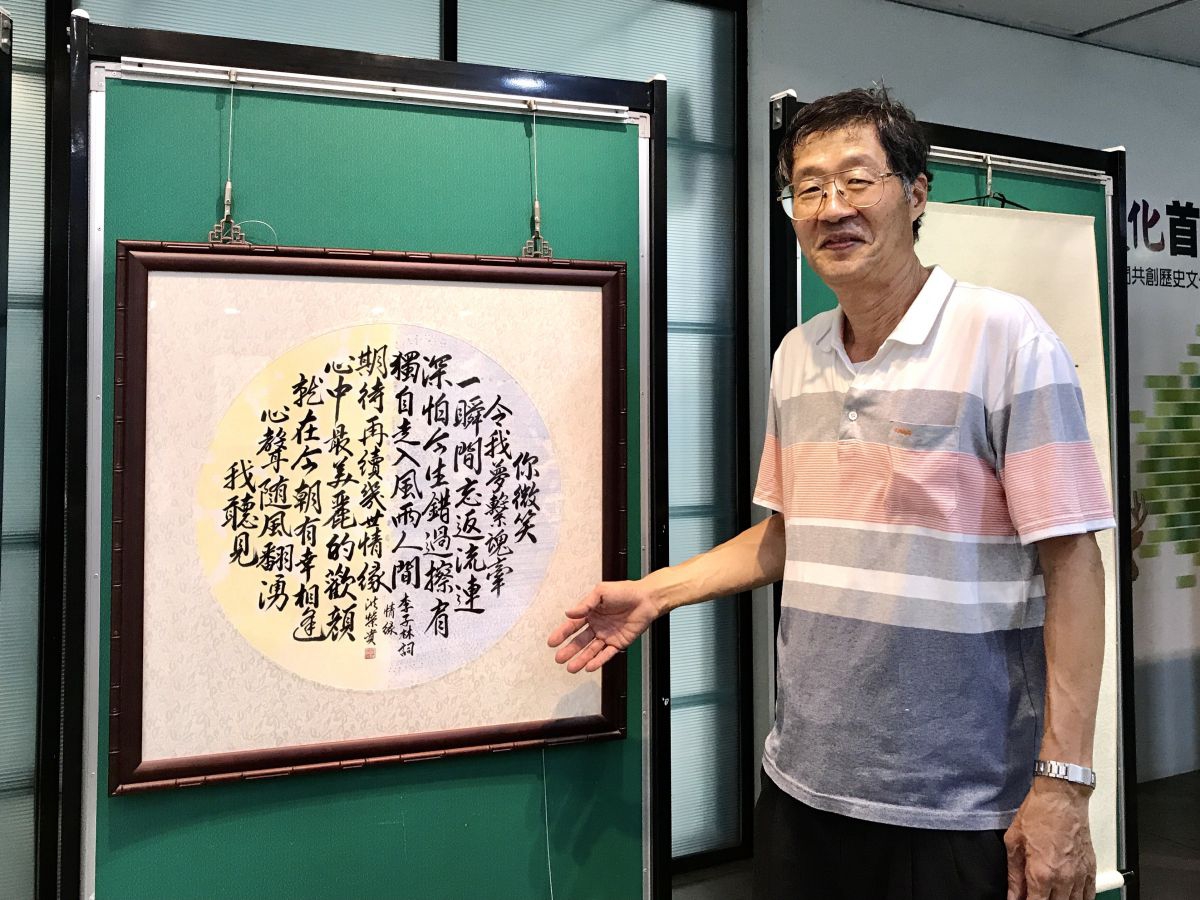 你微笑
令我夢繫魂牽
一瞬間忘返流連
深怕今生錯過擦肩
獨自走入風雨人間
期待再續幾世情緣
心中最美麗的歡顏
就在今朝有幸相逢
心聲随風翻湧
我聽見
李子林詞
情緣
洪榮貴
化首
共創歷史文